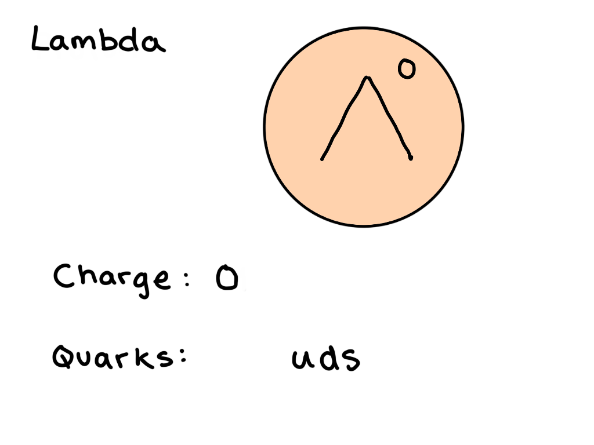 Lambda
Λ⁰
Charge: 0
Quarks: uds